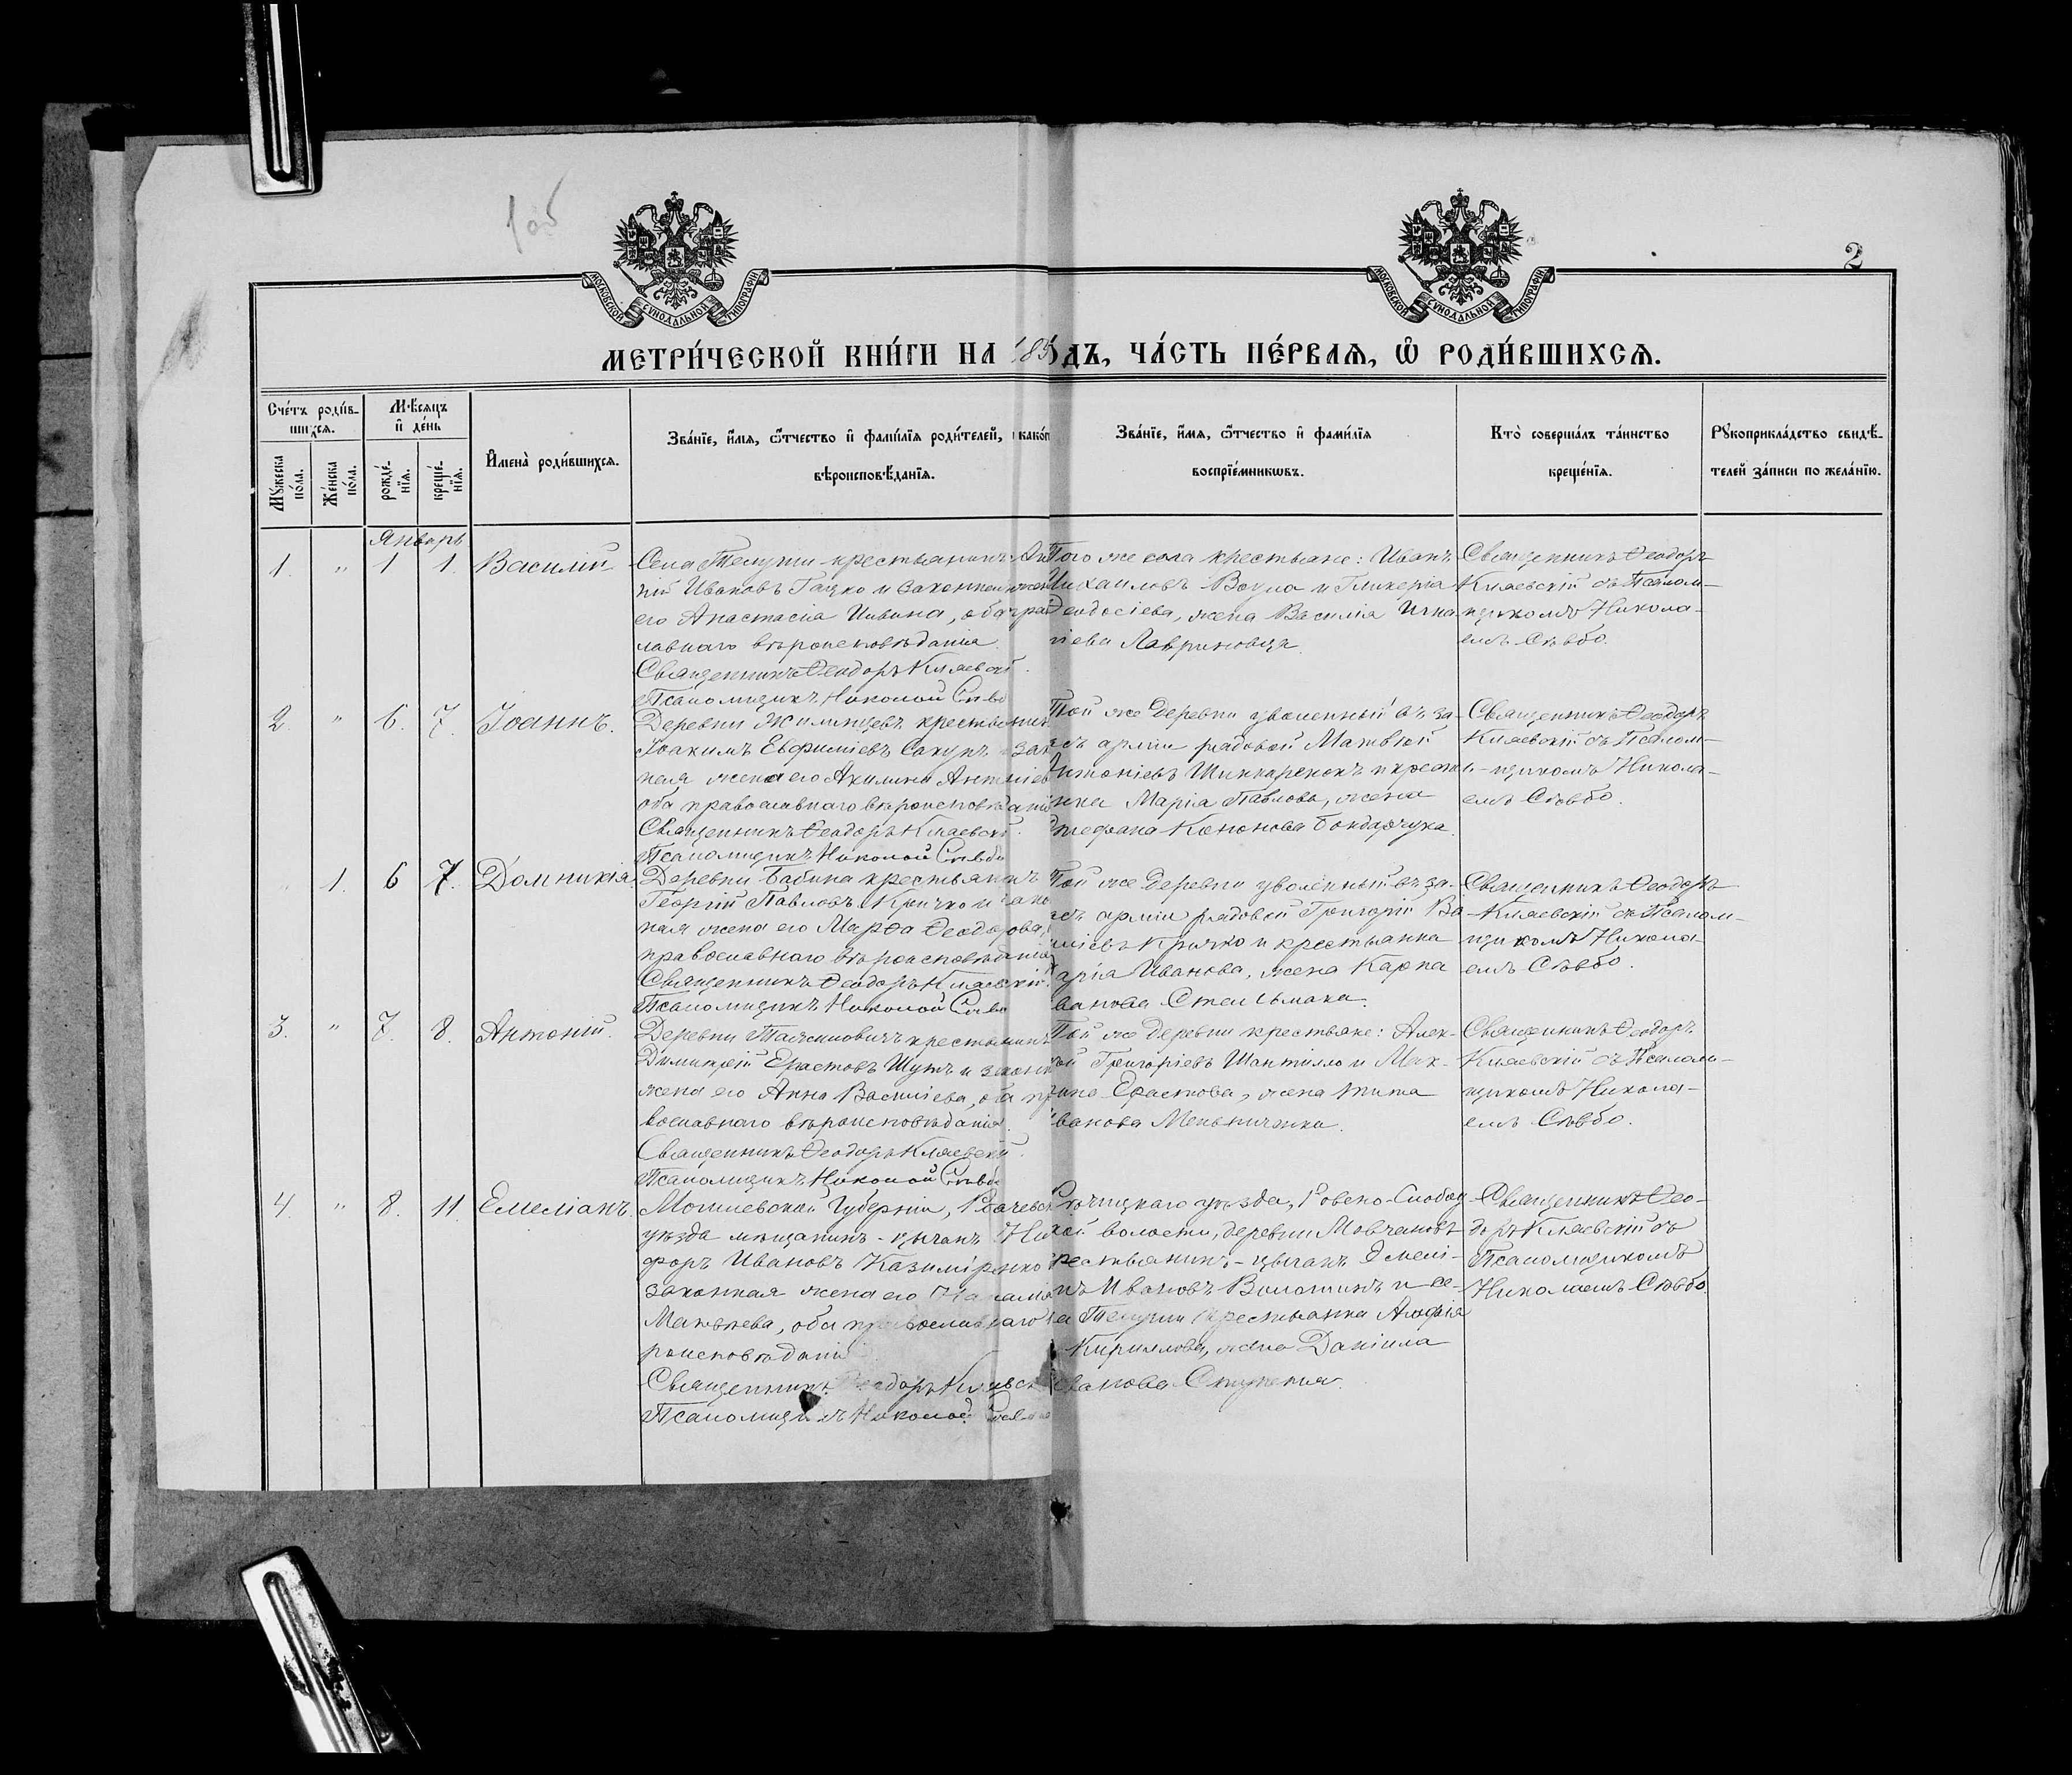 1об
2
МОСКОВСКОЙ СѴНОДАЛЬНОЙ ТИПОГРАФІИ
МОСКОВСКОЙ СѴНОДАЛЬНОЙ ТИПОГРАФІИ
МЕТРИ́ЧЕСКОЙ КНИ́ГИ НА 185 ДЪ, ЧА́СТЬ ПЕ́РВАѦ, Ѽ РОДИ́ВШИХСѦ.
Сче́тъ роди́в-
шихсѧ.
Мꙋ́жеска по́ла.
Же́нска по́ла.
Мѣ́сѧцъ
и҆ де́нь
рожде́-
нїѧ.
креще́-
нїѧ.
И҆мена̀ роди́вшихсѧ.
Зва́нїе, и҆́мѧ, ѻ҆́тчество и҆ фами́лїѧ роди́телей, и како́г
вѣроисповѣ́данїѧ.
Зва́нїе, и҆́мѧ, ѻ҆́тчество и҆ фами́лїѧ
воспрїе́мникѡвъ.
Кто̀ соверша́лъ та́инство
креще́нїѧ.
Рꙋкоприкла́дство свидѣ́-
телей за́писи по жела́нїю.
Январь
1. " 1 1. Василій
Села Телуши крестьянинъ
ній Ивановъ Гацко и законная жен
его Анастасія Иивина, оба прав
лавнаго вѣроисповѣданія.
Священникъ Ѳеодоръ Кляевскій.
Псаломщикъ Николай Сѣвбо
Того же села крестьяне: Иванъ
Михаиловъ и Гликерія
Ѳеодосіева, жена Василія Игна
тіева Лавриновца.
Священникъ Ѳеодоръ
Кляевскій съ Псалом-
щикомъ Никола-
емъ Сѣвбо.
2. " 6. 7. Іоаннъ.
Деревни Жилинцевъ крестьянин
Іоакимъ Евфиміевъ Сакунъ и зак
ная жена его Акилина Антоніев
оба православнаго вѣроисповѣданія
Священникъ Ѳеодоръ Кляевскій.
Псаломщикъ Николай Сѣвбо
Той же деревни уволенный въ за-
асъ арміи рядовой Матвѣй
Антоніевъ и крестья-
нка Марія Павлова, жена
Стефана Кононова Бондарчука.
Священникъ Ѳеодоръ
Кляевскій съ Псалом-
щикомъ Никола-
емъ Сѣвбо.
1. 6 7. Домникія.
Деревни Бабина крестьянинъ
Георгій Павловъ Кричко и зако
ная жена его Марѳа Ѳеодорова,
православнаго вѣроисповѣданія
Священникъ Ѳеодоръ Кляевскій.
Псаломщикъ Николай Сѣвбо
Той же деревни уволенный въ за-
асъ арміи рядовой Григорій Ва
иліевъ Кричко и крестьянка
арія Иванова, жена Карпа
ванова Стельмака.
Священникъ Ѳеодоръ
Кляевскій съ Псалом-
щикомъ Никола-
емъ Сѣвбо.
3. " 7. 8. Антоній.
Деревни крестьянинъ
Димитрій Ерастовъ Шутъ и законн
жена его Анна Василіева, оба пр
вославнаго вѣроисповѣданія.
Священникъ Ѳеодоръ Кляевскій.
Псаломщикъ Николай Сѣвбо
Той же деревни крестьяне: Алек-
ѣй Григоріевъ Шантилло и Мат-
рина Ерастова, жена Тита
Иванова Мельниченки.
Священникъ Ѳеодоръ
Кляевскій съ Псалом-
щикомъ Никола-
емъ Сѣвбо.
4. " 8. 11. Емеліанъ.
Могилевской Губерніи, Рогачевск
уѣзда мѣщанинъ-цыганъ Ни
форъ Ивановъ Казиміренко
законная жена его
Матѳеева, оба православнаго
роисповѣданія
Священникъ Ѳеодоръ Кляевск
Псаломщикъ Николай
Рѣчицкаго уѣзда, Ровено-Слобод
кой волости, деревни Мовчановъ
крестьянинъ-цыганъ Эмелі-
нъ Ивановъ и се-
ла Телуши крестьянка Агафія
Кириллова, жена Даніила
ванова
Священникъ Ѳео-
доръ Кляевскій съ
Псаломщикомъ
Николаемъ Сѣвбо.